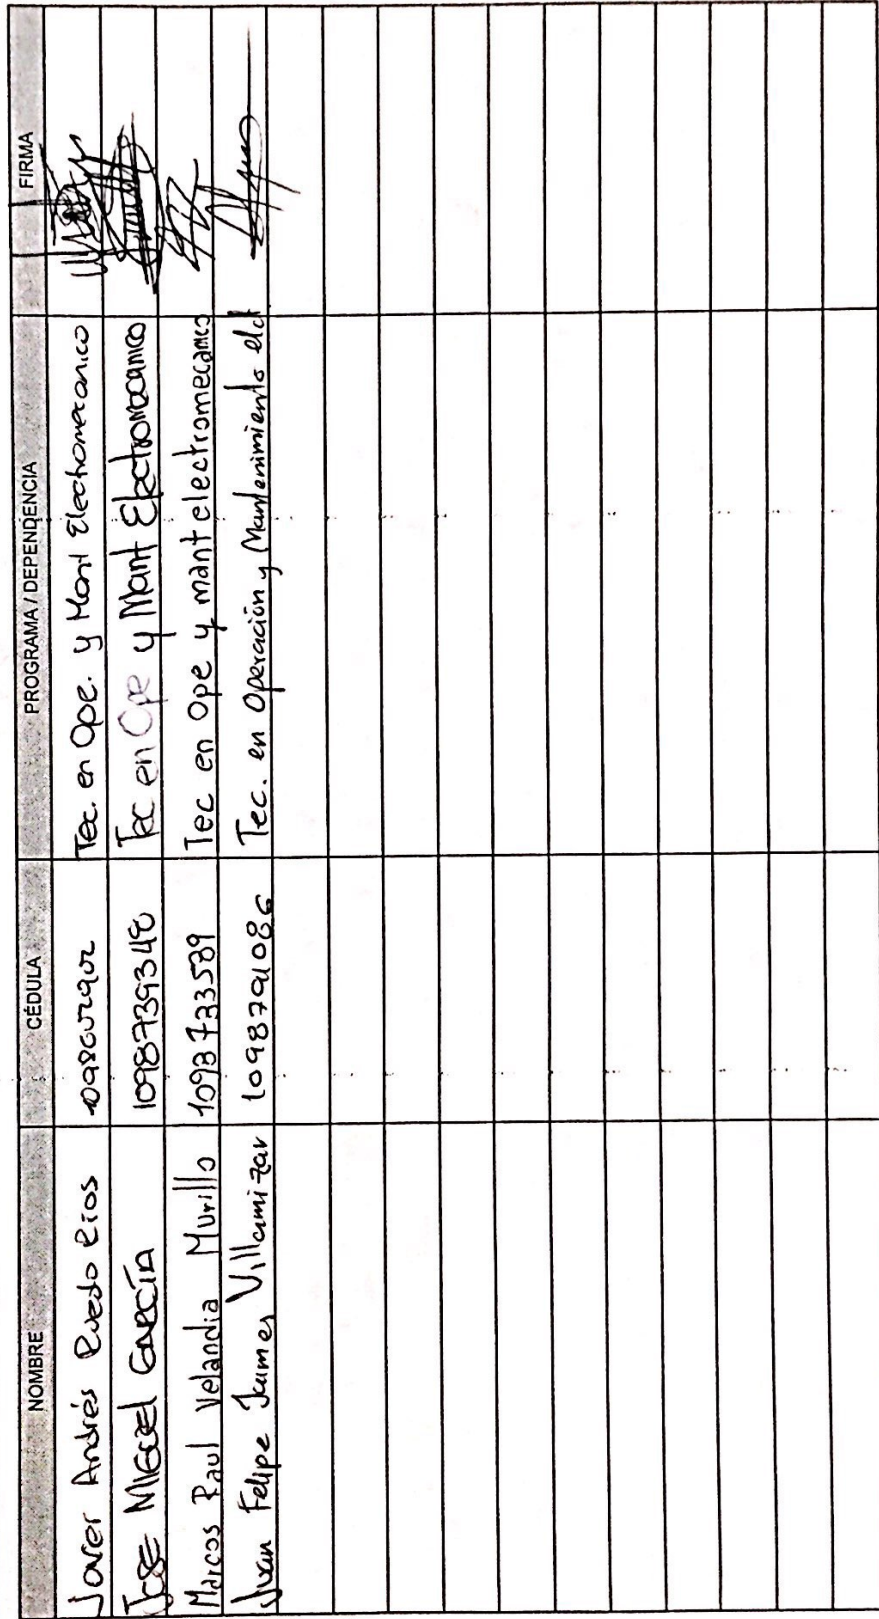 NOMBRE CÉDULA PROGRAMA / DEPENDENCIA FIRMA
Javier Andrés Rueda Rios Tec. en Ope. y Mant Electromecanico
JOSE MIGUEL GARCÍA 1098739348 Tec en Ope y Mant Electromecanico
Marcos Raul Velandia Murillo 1098733589 Tec en Ope y mant electromecanico
Juan Felipe Jaimes Villamizar 1098791086 Tec. en Operación y Mantenimiento elct